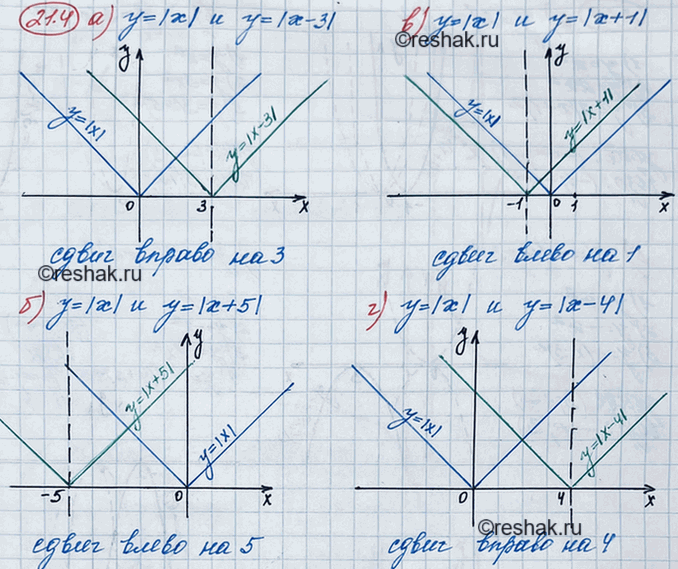 21.4 а) y=|x| и y=|x-3|
y
y=|x|
y=|x-3|
0 3 x
сдвиг вправо на 3
©reshak.ru
в) y=|x| и y=|x+1|
©reshak.ru
y
y=|x|
y=|x+1|
-1 0 1 x
сдвиг влево на 1
©reshak.ru
б) y=|x| и y=|x+5|
y
y=|x+5|
y=|x|
-5 0 x
сдвиг влево на 5
г) y=|x| и y=|x-4|
y
y=|x|
y=|x-4|
0 4 x
©reshak.ru
сдвиг вправо на 4